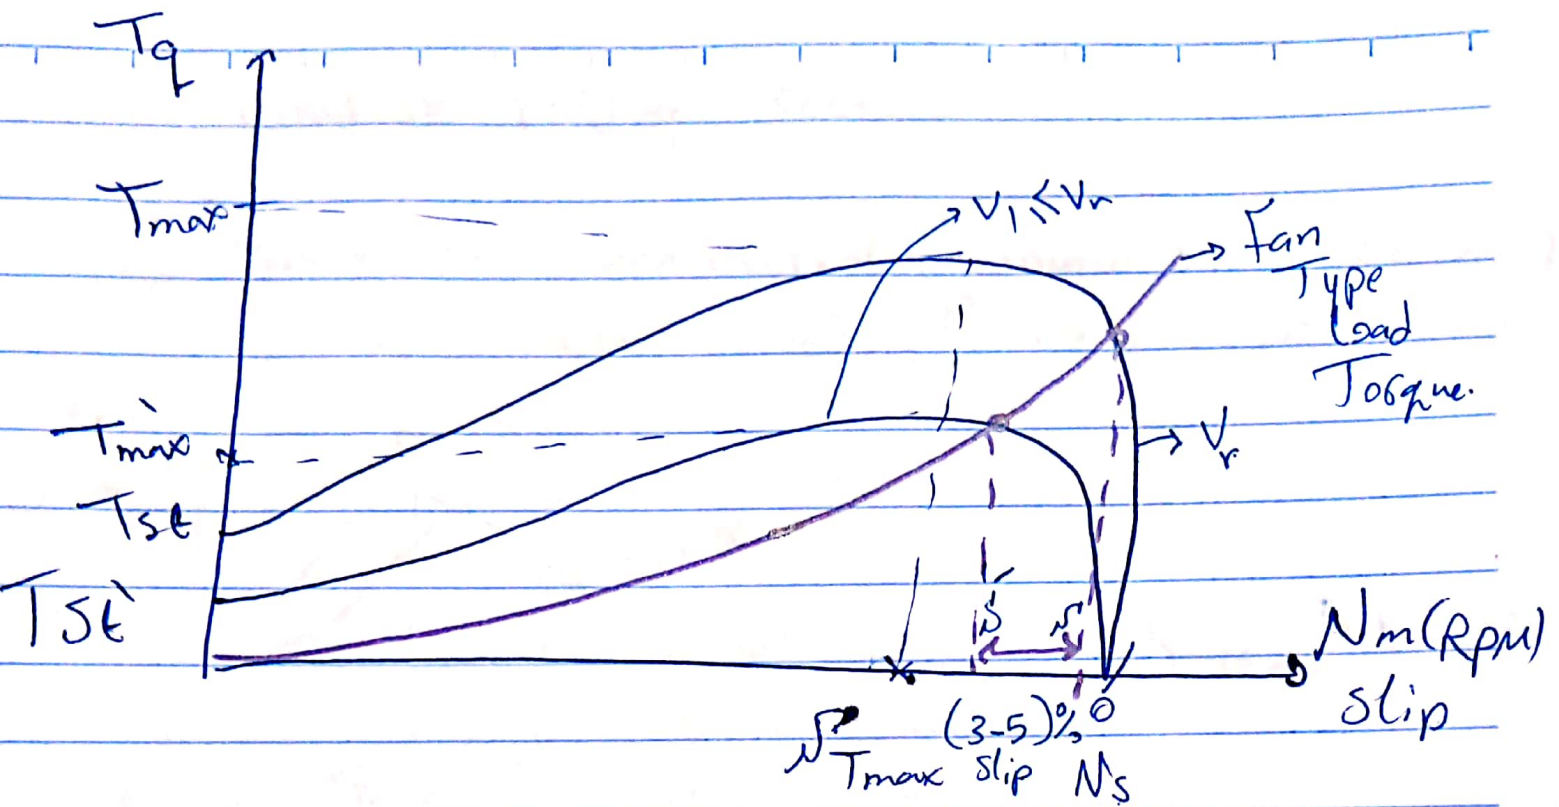 Tq
Tmax
V1 ≤ Vr
Fan
Type
Load
Torque.
T`max
Vr
Tst
Tst`
S' S
Nm (RPM)
slip
STmax
(3-5)%
slip
0
Ns